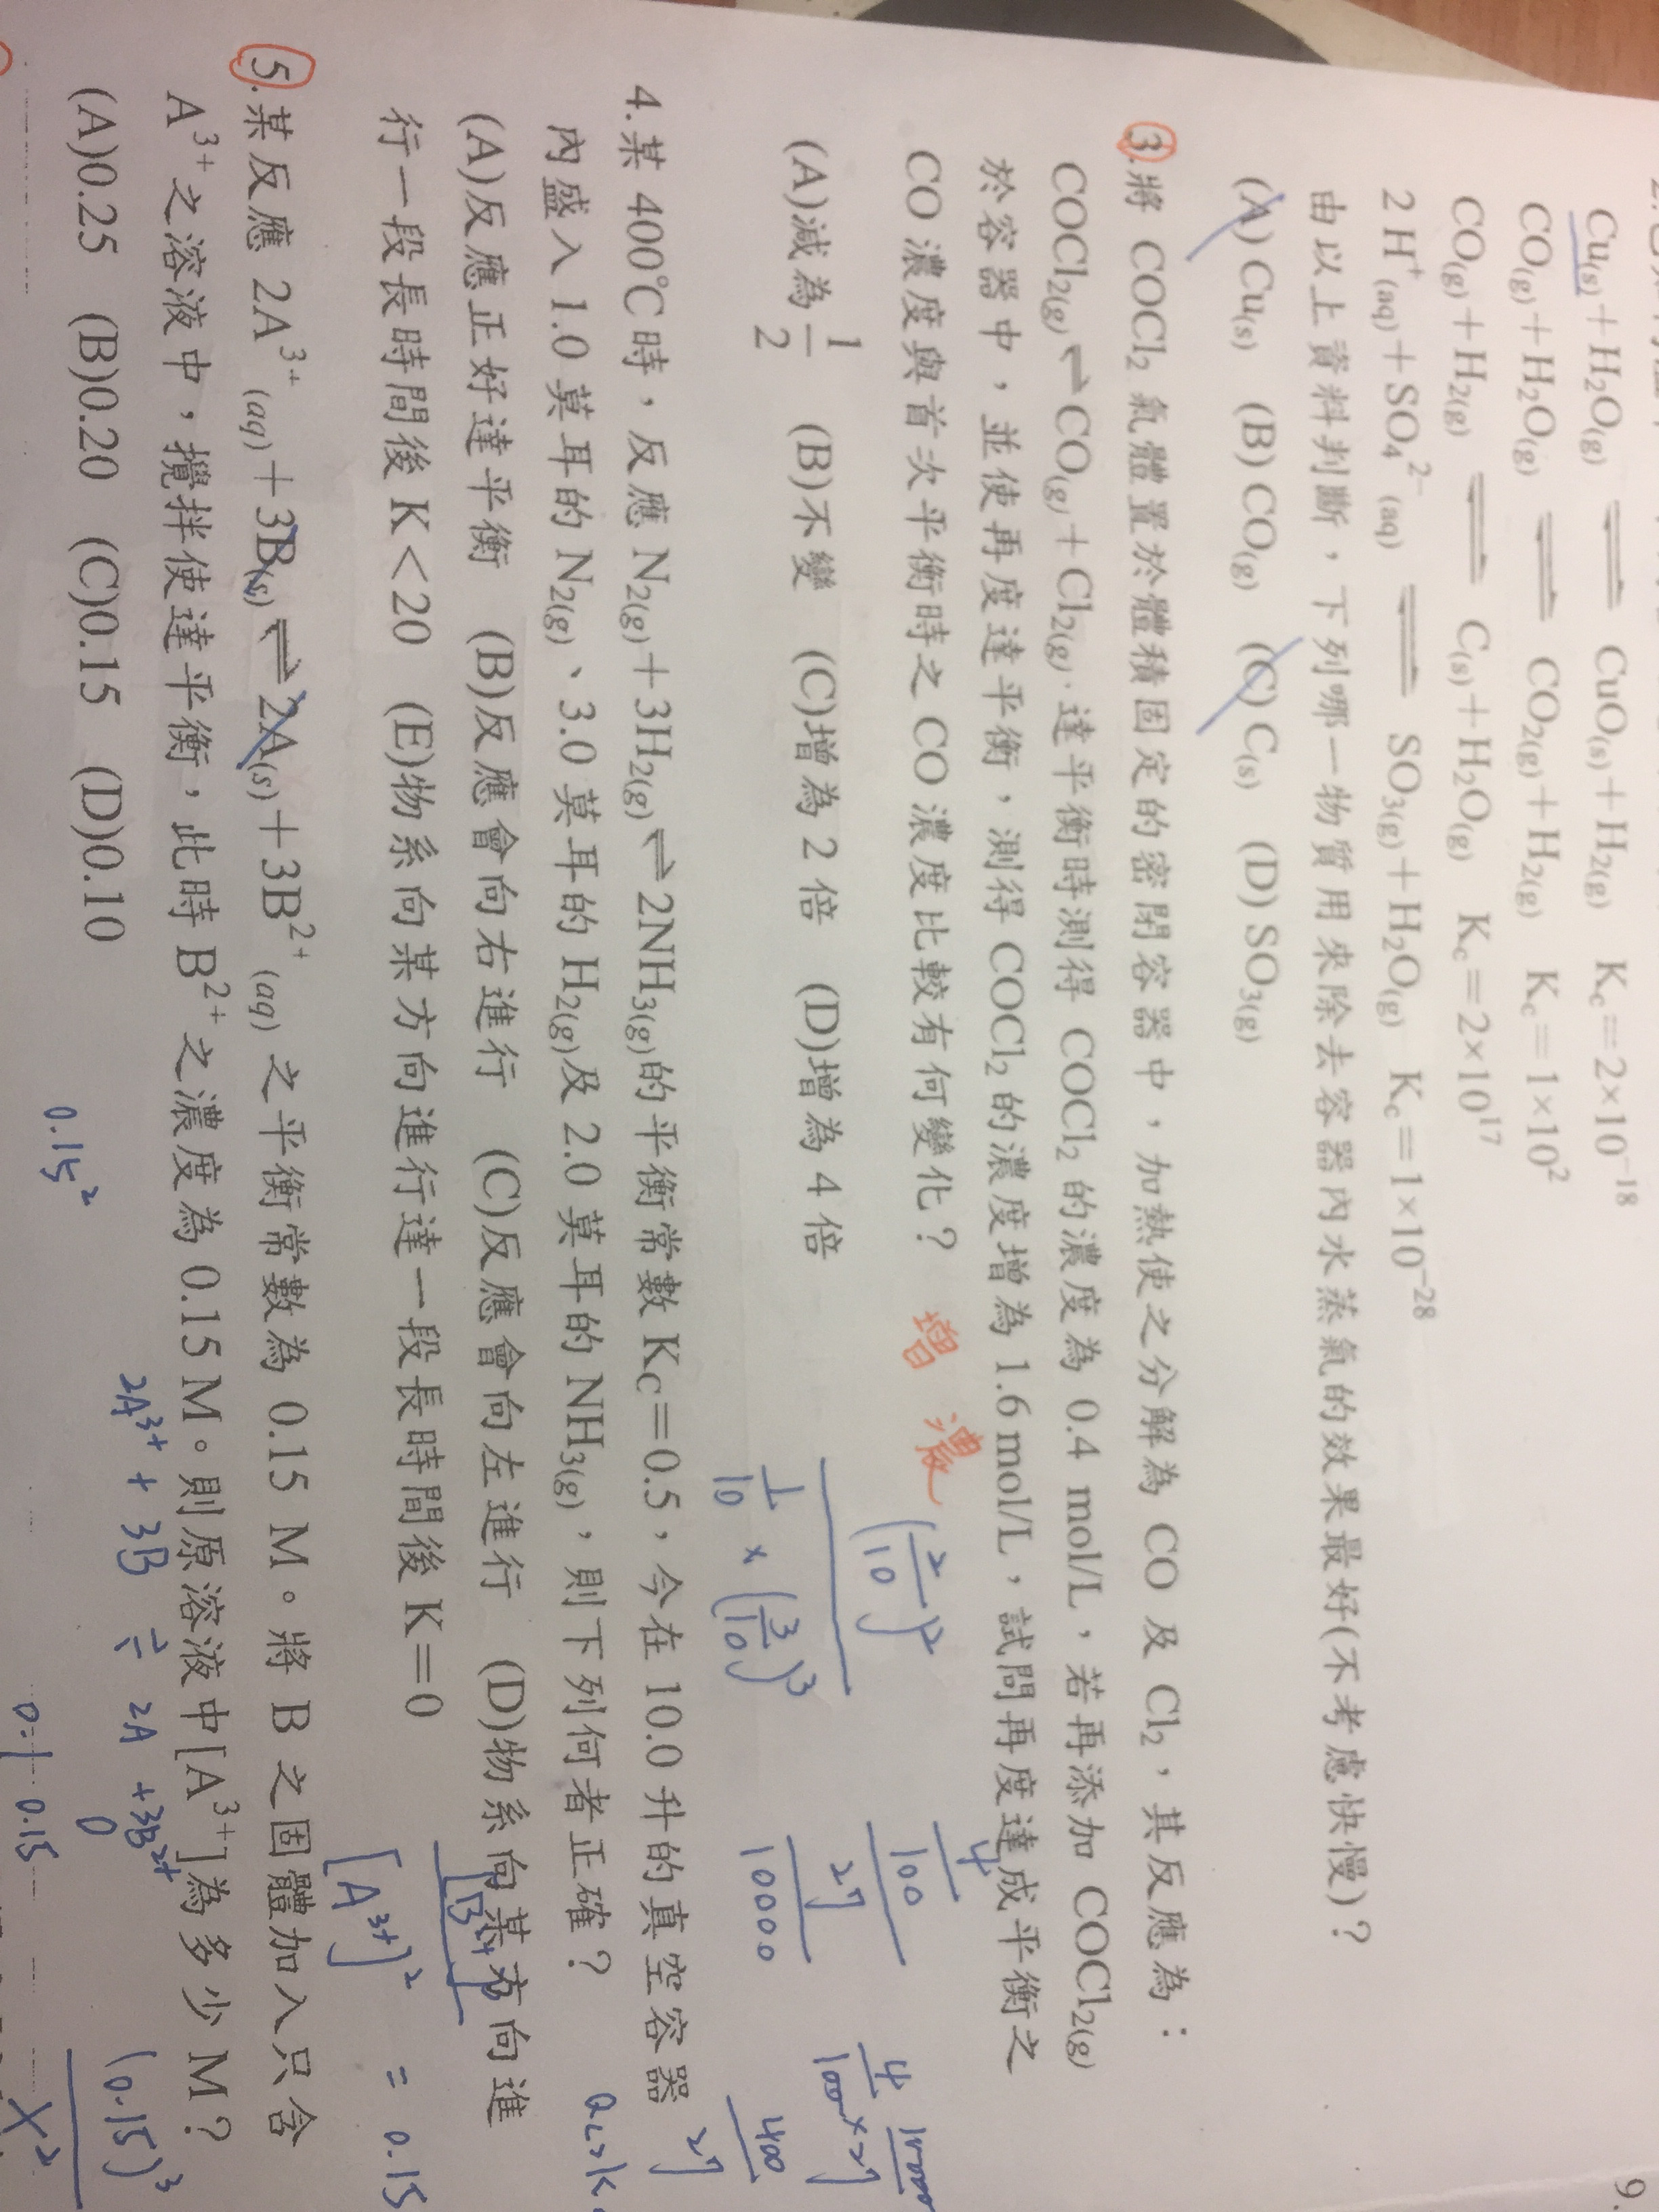 Cu(s)+H₂O(g) ⇌ CuO(s)+H₂(g) K_c=2×10⁻¹⁸
CO(g)+H₂O(g) ⇌ CO₂(g)+H₂(g) K_c=1×10²
CO(g)+H₂(g) ⇌ C(s)+H₂O(g) K_c=2×10¹⁷
2 H⁺(aq)+SO₄²⁻(aq) ⇌ SO₃(g)+H₂O(g) K_c=1×10⁻²⁸
由以上資料判斷，下列哪一物質用來除去容器內水蒸氣的效果最好(不考慮快慢)？
(A) Cu(s) (B) CO(g) (C) C(s) (D) SO₃(g)
3.將 COCl₂ 氣體置於體積固定的密閉容器中，加熱使之分解為 CO 及 Cl₂，其反應為：
COCl₂(g)⇌CO(g)+Cl₂(g)，達平衡時測得 COCl₂ 的濃度為 0.4 mol/L，若再添加 COCl₂(g)
於容器中，並使再度達平衡，測得 COCl₂ 的濃度增為 1.6 mol/L，試問再度達成平衡之
CO 濃度與首次平衡時之 CO 濃度比較有何變化？ 增 濃
(A)減為 1/2 (B)不變 (C)增為 2 倍 (D)增為 4 倍
(2/10)²
1/10 × (3/10)³
4
100
27
10000
4
100×27
400
27
4.某 400℃時，反應 N₂(g)+3H₂(g)⇌2NH₃(g)的平衡常數 K_C=0.5，今在 10.0 升的真空容器
內盛入 1.0 莫耳的 N₂(g)、3.0 莫耳的 H₂(g)及 2.0 莫耳的 NH₃(g)，則下列何者正確？
(A)反應正好達平衡 (B)反應會向右進行 (C)反應會向左進行 (D)物系向某方向進
行一段長時間後 K<20 (E)物系向某方向進行達一段長時間後 K=0
[A³⁺]² = 0.15
5.某反應 2A³⁺(aq)+3B(s)⇌2A(s)+3B²⁺(aq) 之平衡常數為 0.15 M。將 B 之固體加入只含
A³⁺之溶液中，攪拌使達平衡，此時 B²⁺之濃度為 0.15 M。則原溶液中[A³⁺]為多少 M？
2A³⁺ + 3B ⇌ 2A +3B²⁺
0
(0.15)³
x²
(A)0.25 (B)0.20 (C)0.15 (D)0.10
0.15²
0.15
9.